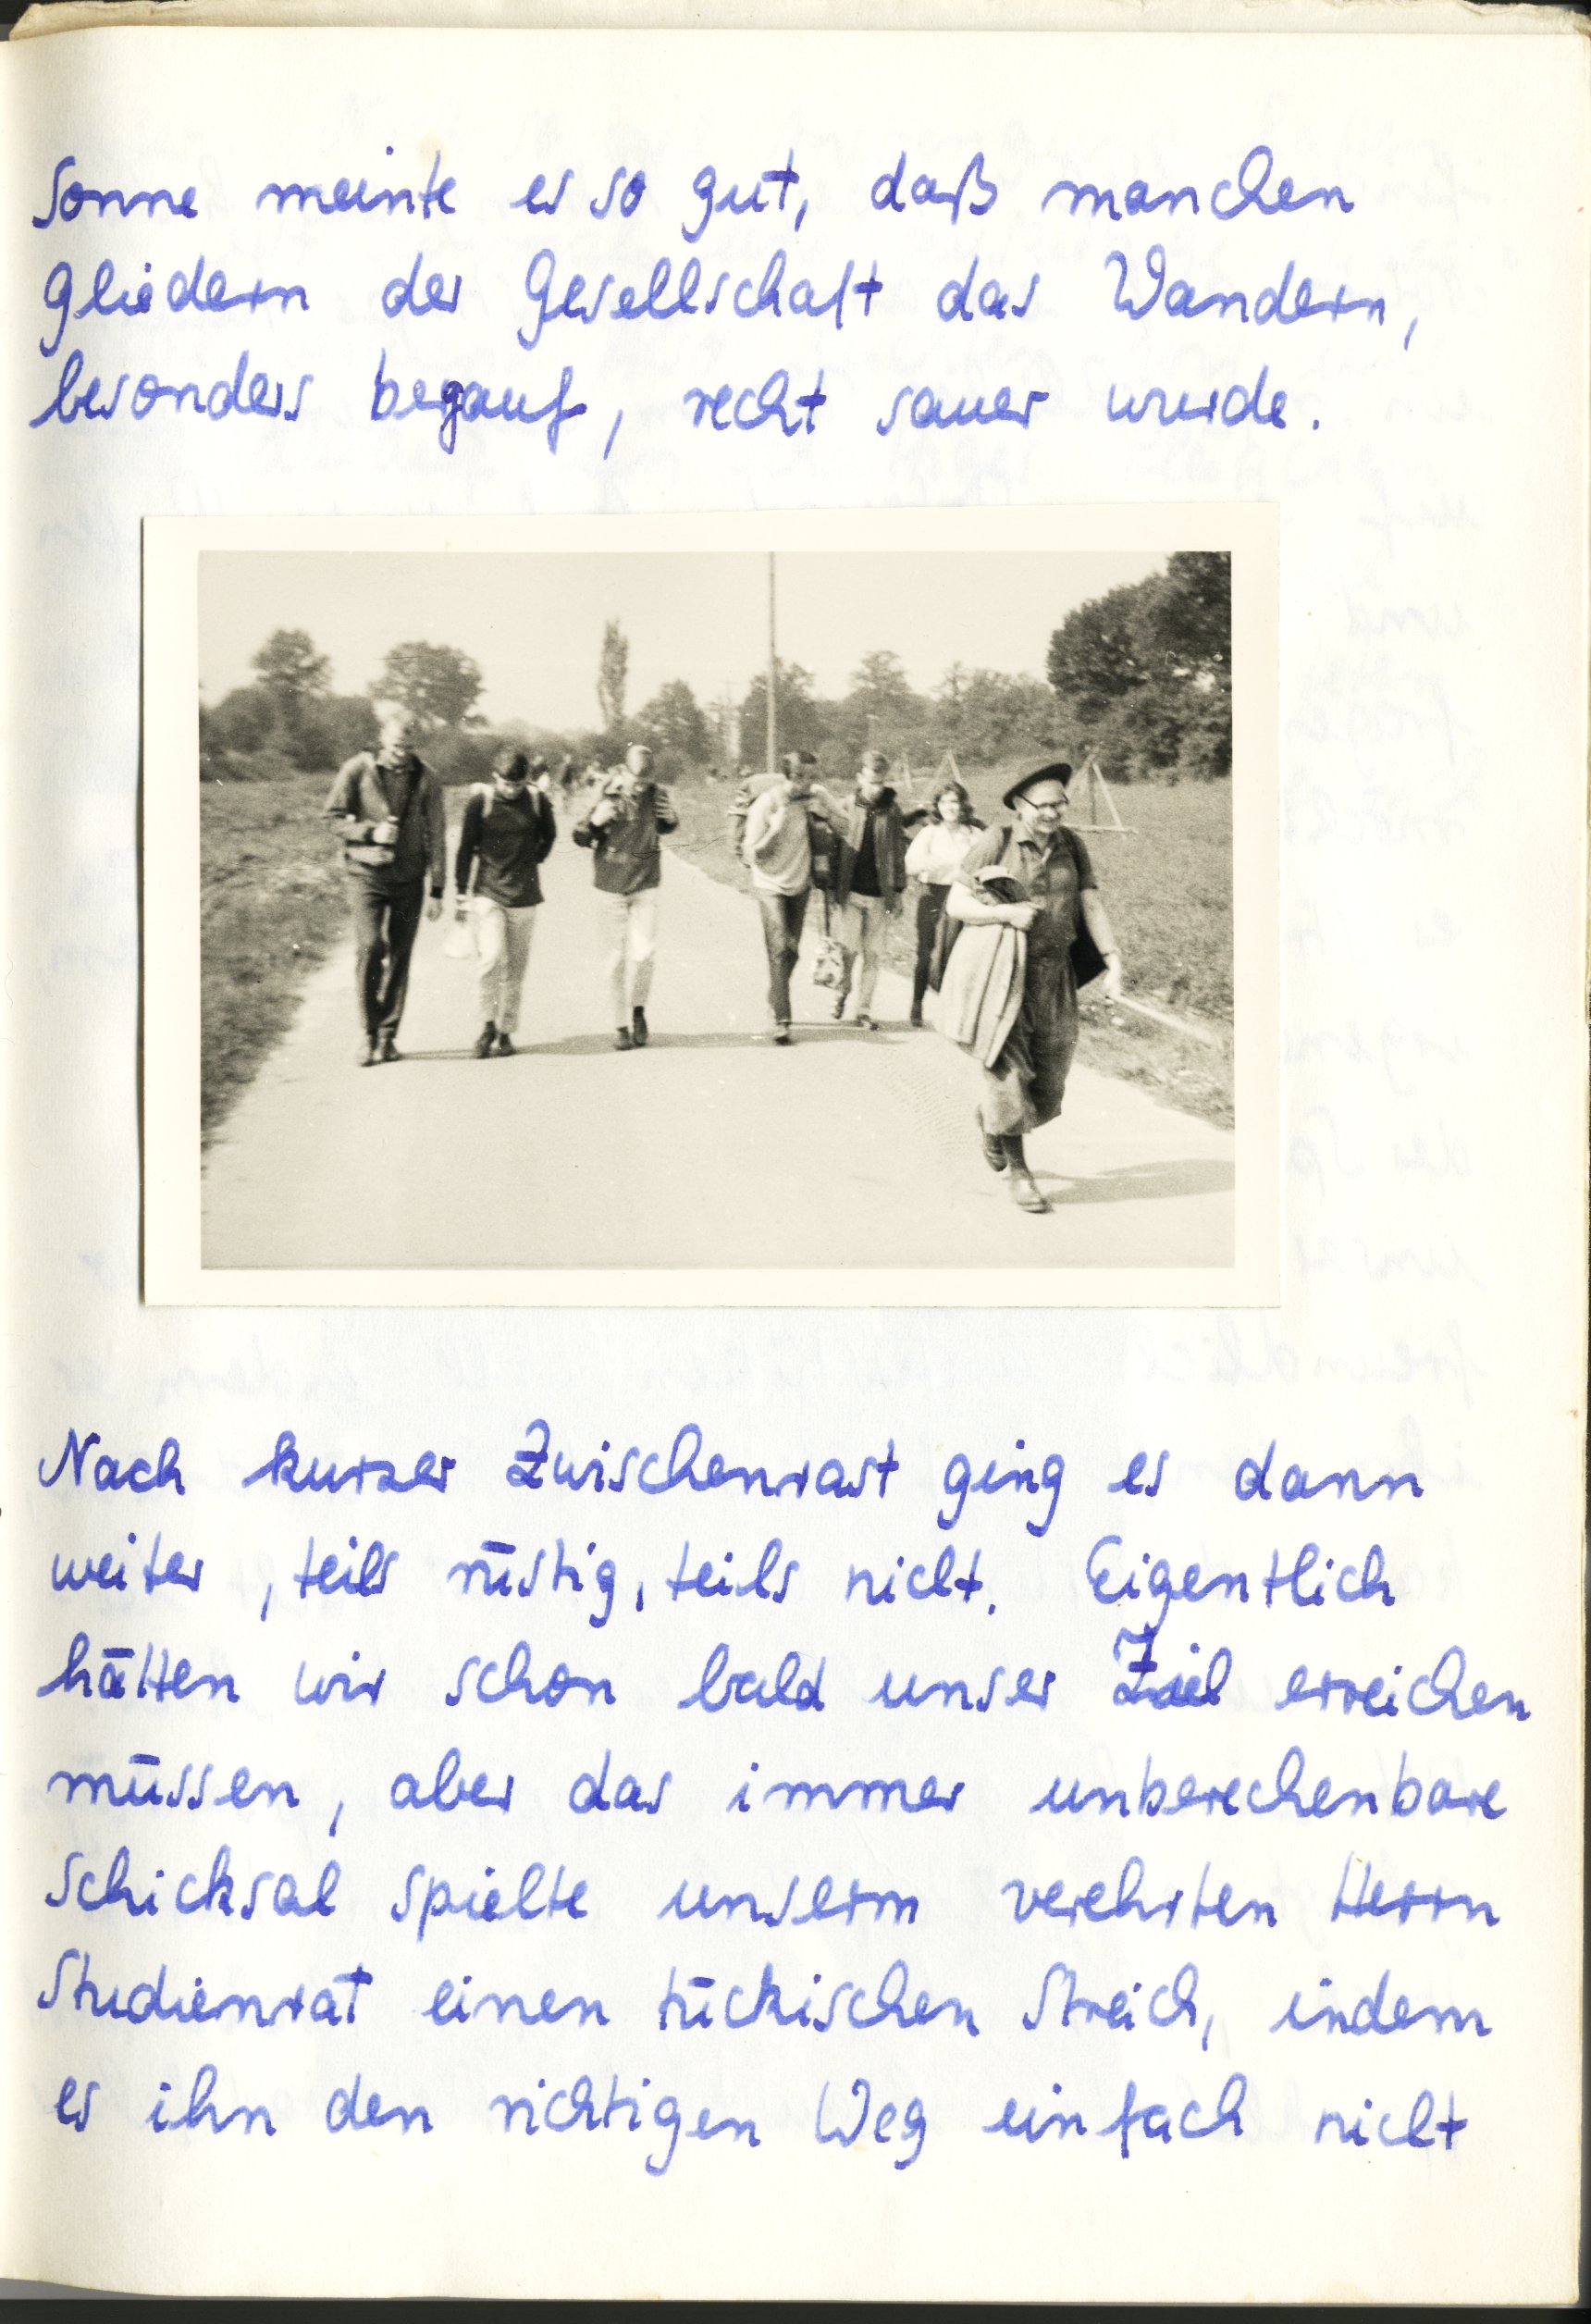 Sonne meinte es so gut, daß manchen
Gliedern der Gesellschaft das Wandern,
besonders bergauf, recht sauer wurde.
Nach kurzer Zwischenrast ging es dann
weiter, teils rüstig, teils nicht. Eigentlich
hätten wir schon bald unser Ziel erreichen
müssen, aber das immer unberechenbare
Schicksal spielte unserm verehrten Herrn
Studienrat einen tückischen Streich, indem
es ihn den richtigen Weg einfach nicht